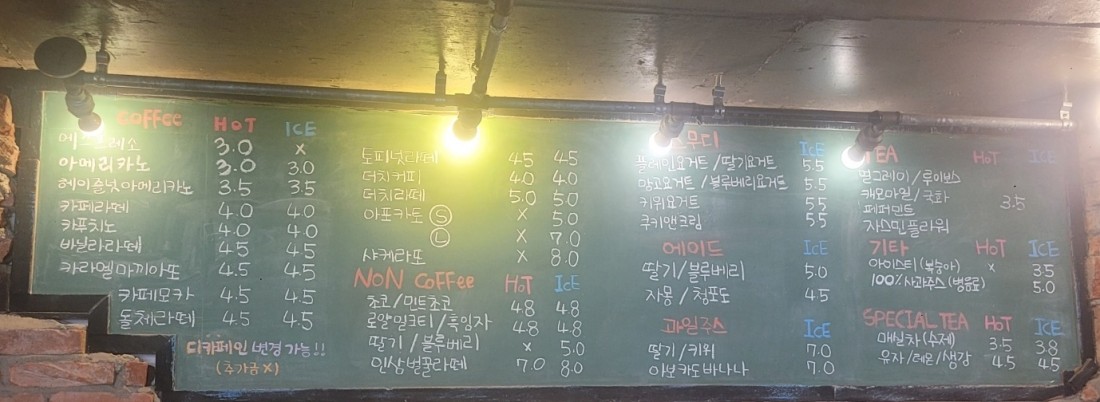 Coffee HOT ICE
에스프레소 3.0 x
아메리카노 3.0 3.0
헤이즐넛아메리카노 3.5 3.5
카페라떼 4.0 4.0
카푸치노 4.0 4.0
바닐라라떼 4.5 4.5
카라멜마끼아또 4.5 4.5
카페모카 4.5 4.5
돌체라떼 4.5 4.5
디카페인 변경 가능!!
(추가금 X)
토피넛라떼 4.5 4.5
더치커피 4.0 4.0
더치라떼 5.0 5.0
아포카토 Ⓢ x 5.0
Ⓛ x 7.0
샤케라또 x 8.0
NON COFFEE HOT ICE
초코/민트초코 4.8 4.8
로얄밀크티/흑임자 4.8 4.8
딸기/블루베리 x 5.0
인삼벌꿀라떼 7.0 8.0
스무디 ICE
플레인요거트/딸기요거트 5.5
망고요거트/블루베리요거트 5.5
키위요거트 5.5
쿠키앤크림 5.5
에이드 ICE
딸기/블루베리 5.0
자몽/청포도 4.5
과일주스 ICE
딸기/키위 7.0
아보카도바나나 7.0
TEA HOT ICE
얼그레이/루이보스
캐모마일/국화 3.5
페퍼민트
자스민플라워
기타 HOT ICE
아이스티(복숭아) x 3.5
100%사과주스(병음료) 5.0
SPECIAL TEA HOT ICE
매실차(수제) 3.5 3.8
유자/레몬/생강 4.5 4.5